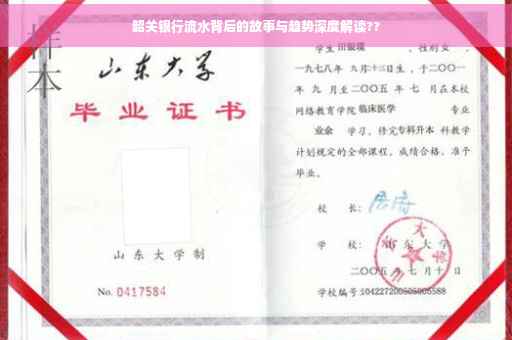 韶关银行流水背后的故事与趋势深度解读??
样本
山东大学
毕业证书
山东大学制
No. 0417584
学生 田银瑞 ，性别女 ，
一九七八年 九月十三日生，于二〇〇一
年 九 月至二〇〇五 年 七 月在本校
网络教育学院 临床医学 专业
业余 学习，修完专科升本 科教学
计划规定的全部课程，成绩合格，准予
毕业。
校 长：
学 校： 山东大学
二〇〇五 年 七 月十 日
学校编号:104227200505005588